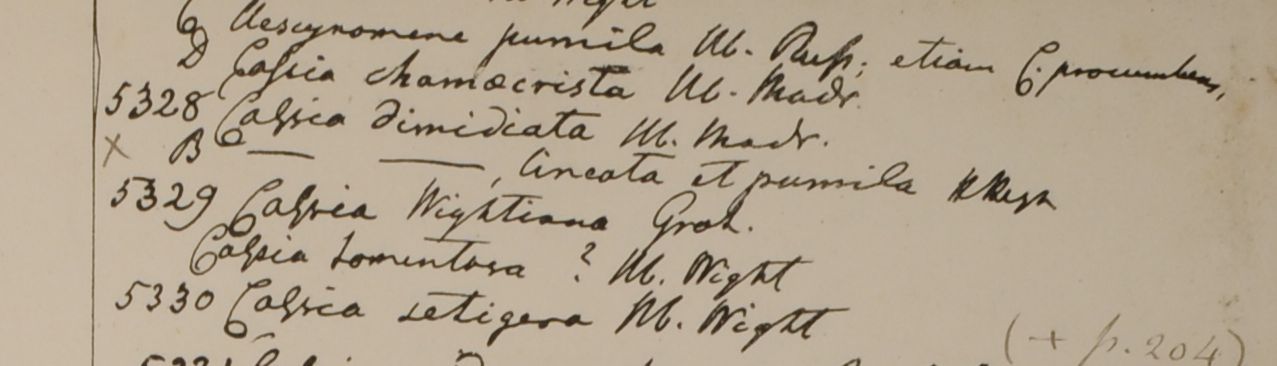 C Aeschynomene pumila Hb. Russ; etiam C. procumbens,
D Cassia chamæcrista Hb. Madr.
5328 Cassia dimidiata Hb. Madr.
X B — — , lineata et pumila
5329 Cassia Wightiana Grah.
Cassia tomentosa ? Hb. Wight
5330 Cassia setigera Hb. Wight
(+ p. 204)